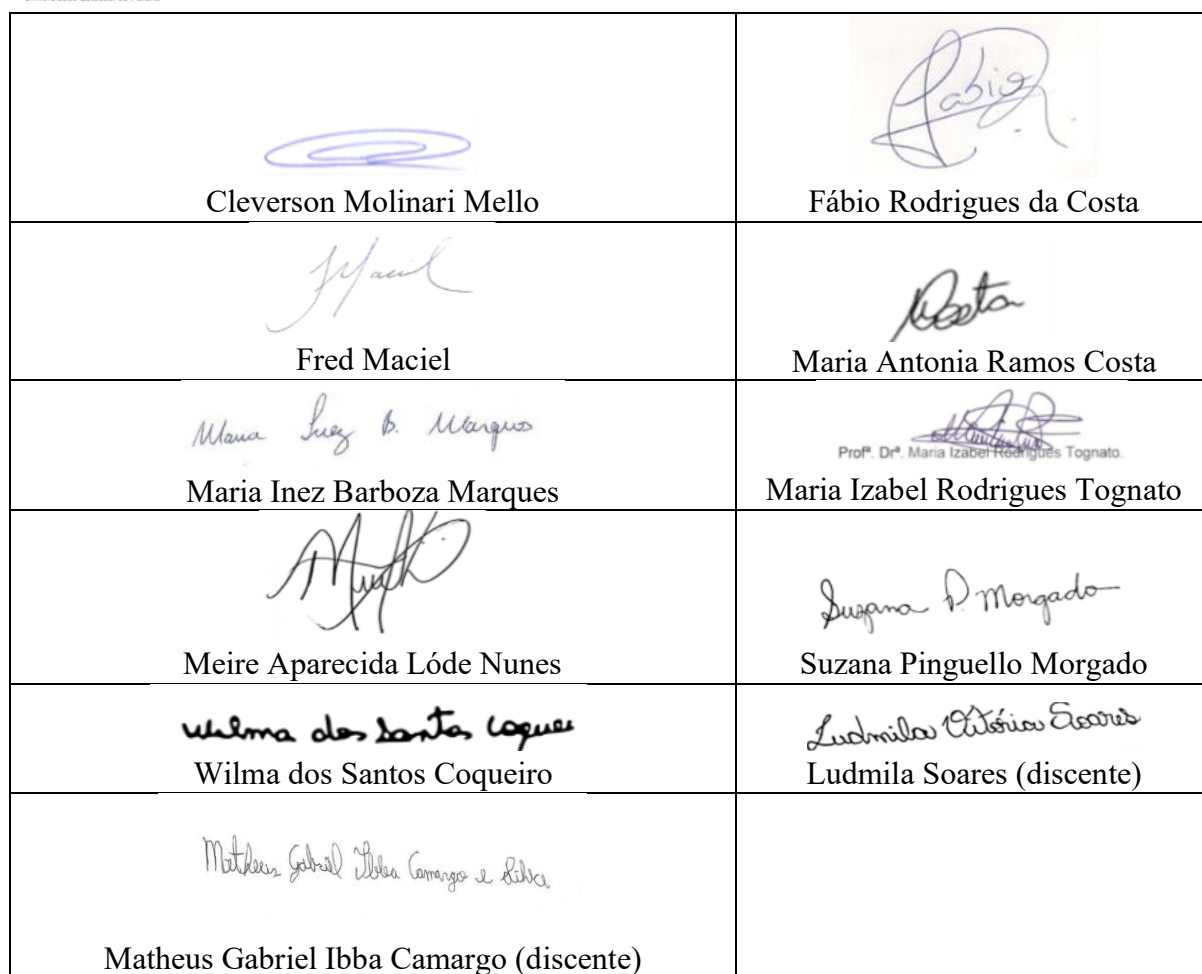 Cleverson Molinari Mello
Fabio
Fábio Rodrigues da Costa
Maciel
Fred Maciel
Costa
Maria Antonia Ramos Costa
Maria Inez B. Marques
Maria Inez Barboza Marques
Profª. Drª. Maria Izabel Rodrigues Tognato.
Maria Izabel Rodrigues Tognato
Meire Aparecida Lóde Nunes
Suzana P. Morgado
Suzana Pinguello Morgado
Wilma dos Santos Coquei
Wilma dos Santos Coqueiro
Ludmila Vitória Soares
Ludmila Soares (discente)
Matheus Gabriel Ibba Camargo e Silva
Matheus Gabriel Ibba Camargo (discente)